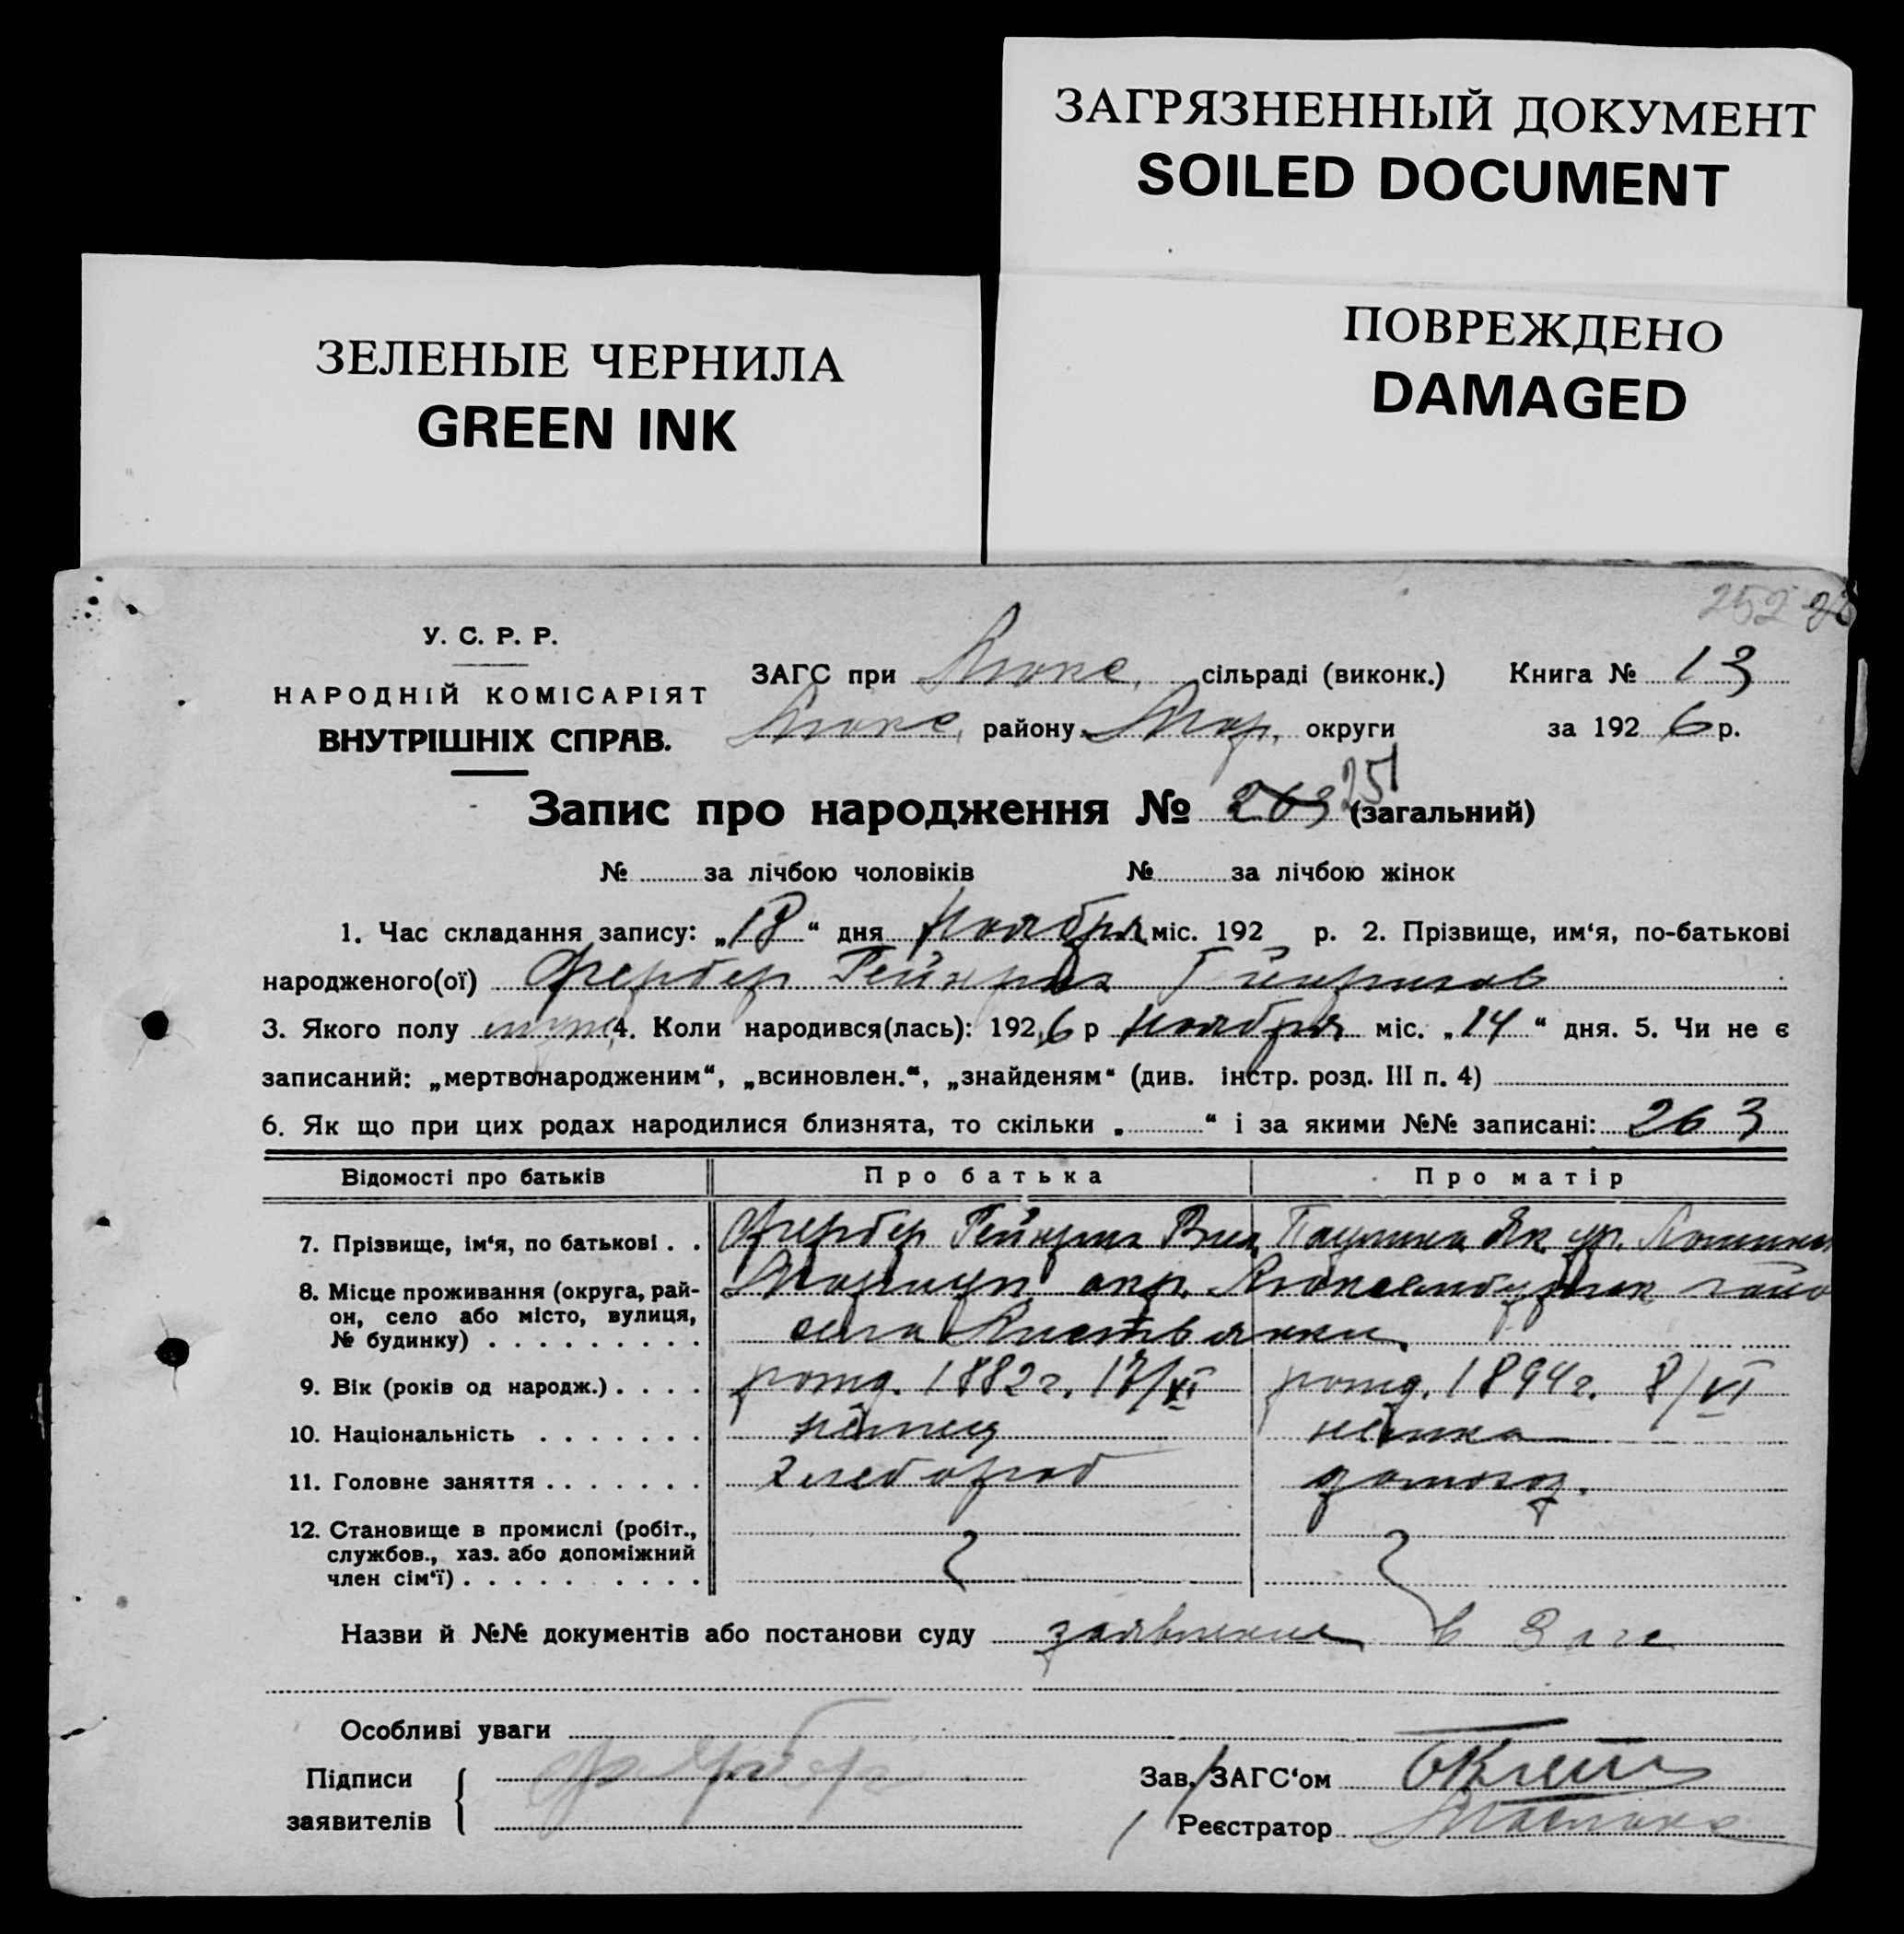 ЗАГРЯЗНЕННЫЙ ДОКУМЕНТ
SOILED DOCUMENT
ЗЕЛЕНЫЕ ЧЕРНИЛА
GREEN INK
ПОВРЕЖДЕНО
DAMAGED
252
У. С. Р. Р.
НАРОДНІЙ КОМІСАРІЯТ
ВНУТРІШНІХ СПРАВ.
ЗАГС при Люкс. сільраді (виконк.) Книга № 13
Люкс. району Мар. округи за 1926 р.
Запис про народження № 263 251 (загальний)
№ за лічбою чоловіків № за лічбою жінок
1. Час складання запису: „18“ дня Ноября міс. 192 р. 2. Прізвище, им‘я, по-батькові
народженого(ої) Фербер Гейнрих Гейнрихов
3. Якого полу муж 4. Коли народився(лась): 1926 р Ноября міс. „14“ дня. 5. Чи не є
записаний: „мертвонародженим“, „всиновлен.“, „знайденям“ (див. інстр. розд. III п. 4)
6. Як що при цих родах народилися близнята, то скільки „ “ і за якими №№ записані: 263
Відомості про батьків Про батька Про матір
7. Прізвище, ім‘я, по батькові . . Фербер Гейнрих Вил. Паулина Як. ур.
8. Місце проживання (округа, рай-
он, село або місто, вулиця,
№ будинку) . . . . . . . . . Мариуп. окр. Люксембургск. района
села
9. Вік (років од народж.) . . . . рожд. 1882 г. 17/XI рожд. 1894 г. 8/VI
10. Національність . . . . . . . немец немка
11. Головне заняття . . . . . . . хлебороб домохоз.
12. Становище в промислі (робіт.,
службов., хаз. або допоміжний
член сім‘ї) . . . . . . . . .
Назви й №№ документів або постанови суду заявление в Загс
Особливі уваги
Підписи
заявителів Фербер
Зав. ЗАГС‘ом
Реєстратор